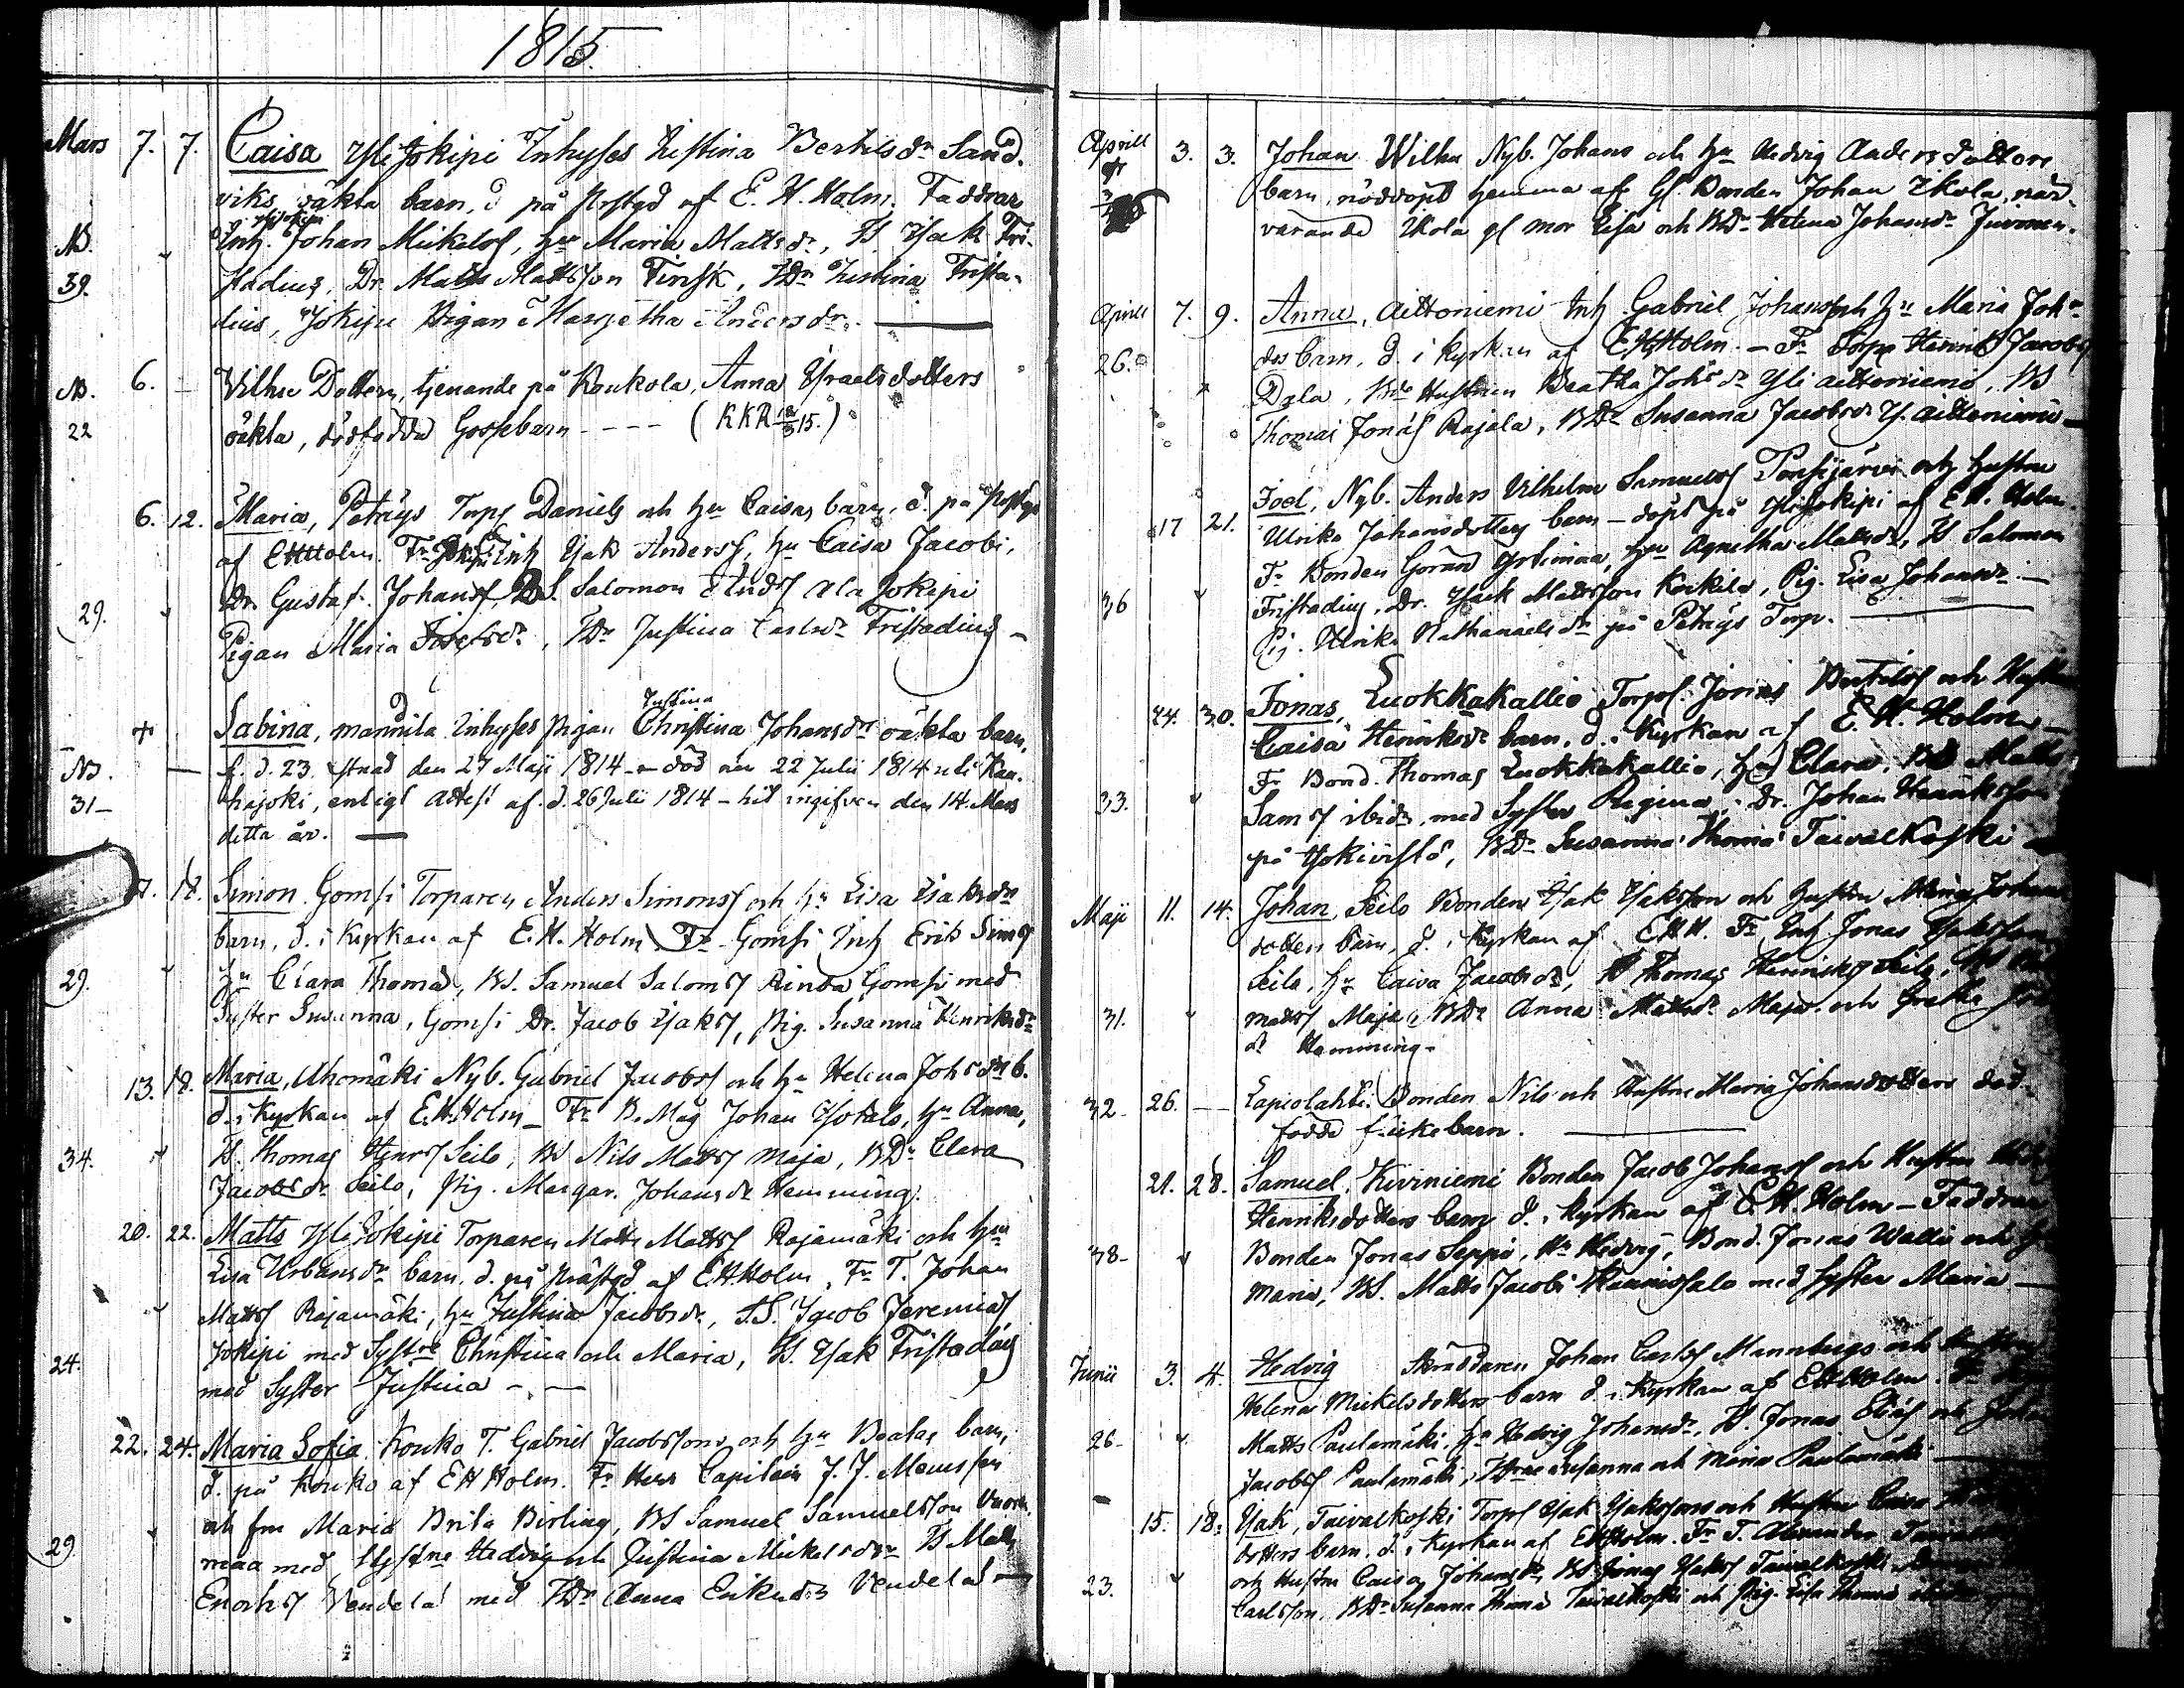 1815.
Mars 7. 7. Caisa Yli Jokipi Inhyses Justina Bertilsdr Sand-
viks oäkta barn, d. på Prstgd af E. H. Holm. Faddrar
Ylijokipi
NB. Inh. Johan Mikelss, hu Maria Mattsdr, TS Isak Fri-
39. stadius, Dr. Matts Mattsson Finsk, TDr Justina Frista-
dius, Jokipi Pigan Margetha Andersdr.
NB. 6. — Vilhu Dottern, tjenande på Koukola, Anna Israelsdotters
22 oäkta, dödfödda Gossebarn - - - - (KKR 12/3 15.)
6. 12. Maria, Petäys Torp Daniels och hu Caisas barn, d. på Prstgd
af EHHolm. Fr Jokipi Inh Isak Anderss, hu Caisa Jacobi,
29. Dr. Gustaf Johanss, BS. Salomon Ala Jokipi
Pigan Maria Josefsdr, TDr Justina Carlsdr Fristadius —
Justina
+ Sabina, mannila Inhyses pigan Christina Johansdr oäkta barn,
NB. — f. d. 23. den 27 Maji 1814 — död den 22 Julii 1814 uti Kau-
31 — hajoki, enligt attest af d. 26 Julii 1814 — hit ingifven den 14. Mars
detta år. —
17. 18. Simon Gomsi Torparen Anders Simonss och hu Lisa Isaksdr
barn, d. i Kyrkan af E. H. Holm. Fr Gomsi Inh Erik Simss
29. hu Clara Thomæ, BS. Samuel Salomss Rinda Gomsi med
Syster Susanna, Gomsi Dr. Jacob Isakss, Pig. Susanna Henriksdr
13. 18. Maria, Ahomäki Nyb. Gabriel Jacobss och hu Helena Johsdr b.
d. i Kyrkan af E.H.Holm — Fr B. Mag Johan Isotalo, hu Anna,
34. TS. Thomas Henrss Seilo, BS Nils Mattss Maja, BDr Clara
Jacobsdr Seilo, Pig. Margar. Johansdr Hemming.
20. 22. Matts Yli Jokipi Torparen Matts Mattss Rajamäki och hu
Lisa Urbansdr barn. d. på Prästgd af EHHolm, Fr T. Johan
Mattss Rajamäki, hu Justina Jacobsdr, TS. Jacob Jeremiass
24. Jokipi med Systrne Christina och Maria, TS. Isak Fristadius
med Syster Justina - —
22. 24. Maria Sofia Kouko T. Gabriel Jacobssons och hu Beatas barn,
d. på Kouko af EHHolm. Fr Herr Capitain J. J.
och fru Maria Brita Birling, BS Samuel Samuelsson
29. maa med Systrne Hedvig och Justina Mickelsdr TS Matts
Enochss Vendela med TDr Anna Eriksdr Vendelas —
Aprill 3. 3. Johan Wilhu Nyb. Johans och hu Hedvig Andersdotters
barn, nöddöpt hemma af Gl Bonden Johan Ikola, när-
varande Ikola gl mor Lisa och BDr Helena Johansdr Juvonen.
Aprill 7. 9. Anna, Aittoniemi Inh Gabriel Johanss och hu Maria Johs-
26. drs barn, d. i kyrkan af EHHolm. — Fr Torp Henrik Jacobss
Dala, Bde Hustrun Beatha Johsdr Yli Aittoniemi, BS
Thomas Jonæss Rajala, BDr Susanna Jacobsdr Y. Aittoniemi —
17 21. Joel, Nyb. Anders Vilhelm Samuelss Ponsijärvi och hustru
Ulrika Johansdotters barn — döpt på Ylijokipi af E H. Holm.
Fr Bonden Göran hu Agnetha Mattsdr, TS Salomon
36 Fristadius, Dr. Isack Mattsson Koskela, Pig. Lisa Johansdr —
Pig. Ulrika Nathanaelsdr på Petäys Torp.
24. 30. Jonas, Luokkakallio Torps. Jonas Bertilss och Hustru
Caisa Henriksdr barn, d. i Kyrkan af E. H. Holm —
Fr Bond. Thomas Luokkakallio, hu Clara, BS Matts
33. Samss ibidm, med Syster Regina, Dr. Johan Henriksson
på Isokivistö, BDr Susanna Thomæ Taivalkoski
Maji 11. 14. Johan, Seilo Bonden Isak Isaksson och hustru Johans-
dotters barn, d. i Kyrkan af EHH. Fr Inh Jonas Isaksson
Seilo, hu Caisa Jacobsdr, TS Thomas Henrikss Seilo, BS
31. Mattss Maja, BDr Anna Mattsdr Maja och Gretha
Hemming —
32 — 26. — Lapiolahti Bonden Nils och Hustru Maria Johansdotters död-
födde flickebarn.
21. 28. Samuel, Kiviniemi Bonden Jacob Johanss och Hustru
Henriksdotters barn d. i kyrkan af E.H. Holm — Faddrar
38 — Bonden Jonas Seppi, Hu Hedvig, Bond. Jonas Walli och
Maria, BS. Matts Jacobi med syster Maria —
Junii 3. 4. Hedvig Skräddaren Johan Carlss Mannbergs och hustru
Helena Mickelsdotters barn d. i kyrkan af EHHolm. Fr
26 — Matts Paulamäki, hu Hedvig Johansdr, TS. Jonas Eliæss och
Jacobss Paulamäki, TDrne Susanna och Maria Paulamäki
15. 18. Isak, Taivalkoski Torps Isak Isakssons och Hustru Caisa
dotters barn, d. i kyrkan af EHHolm. Fr T. Alexander
23. och Hustru Caisa Johansdr, BS Jonas Isakss Taivalkoski,
Carlsson, BDr Susanna Thomæ Taivalkoski och Pig. Lisa Thomæ